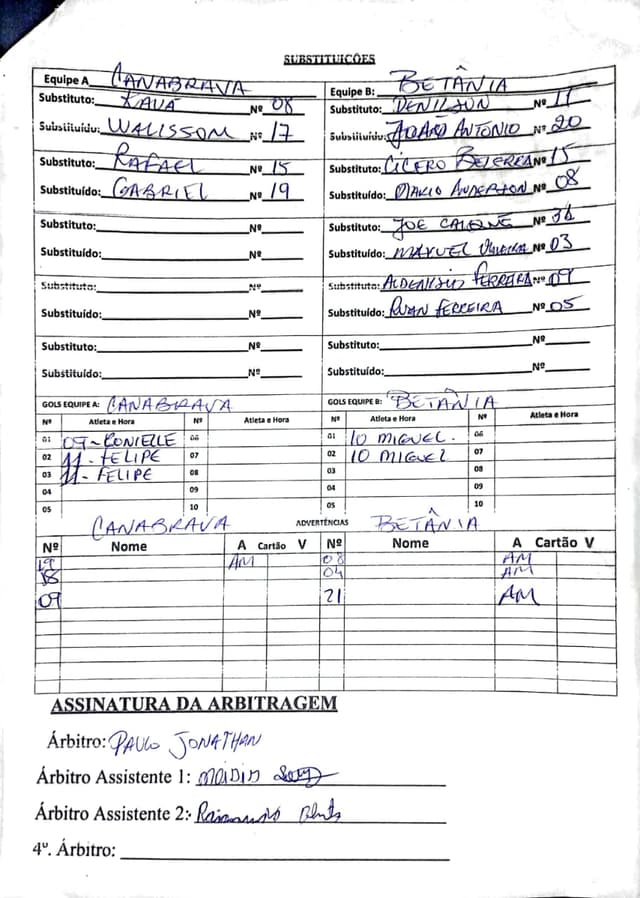 SUBSTITUICÕES
Equipe A CANABRAVA Equipe B: BETÂNIA
Substituto: KAUÃ Nº 08 Substituto: DENILSON Nº 11
Substituído: WALISSOM Nº 17 Substituído: ANTONIO Nº 20
Substituto: RAFAEL Nº 15 Substituto: CICERO BEZERRA Nº 15
Substituído: GABRIEL Nº 19 Substituído: MARIO ANDERSON Nº 08
Substituto: Nº Substituto: JOE Nº
Substituído: Nº Substituído: MANUEL Nº 03
Substituto: Nº Substituto: FERREIRA Nº 09
Substituído: Nº Substituído: RUAN FERREIRA Nº 05
Substituto: Nº Substituto: Nº
Substituído: Nº Substituído: Nº
GOLS EQUIPE A: CANABRAVA GOLS EQUIPE B: BETÂNIA
Nº Atleta e Hora Nº Atleta e Hora Nº Atleta e Hora Nº Atleta e Hora
01 09 - RONIELLE 06 01 10 MIGUEL. 06
02 11 - FELIPE 07 02 10 MIGUEL 07
03 11 - FELIPE 08 03 08
04 09 04 09
05 10 05 10
CANABRAVA ADVERTÊNCIAS BETÂNIA
Nº Nome A Cartão V Nº Nome A Cartão V
19 AM 08 AM
18 04 AM
09 21 AM
ASSINATURA DA ARBITRAGEM
Árbitro: PAULO JONATHAN
Árbitro Assistente 1:
Árbitro Assistente 2: Raimundo
4º. Árbitro: